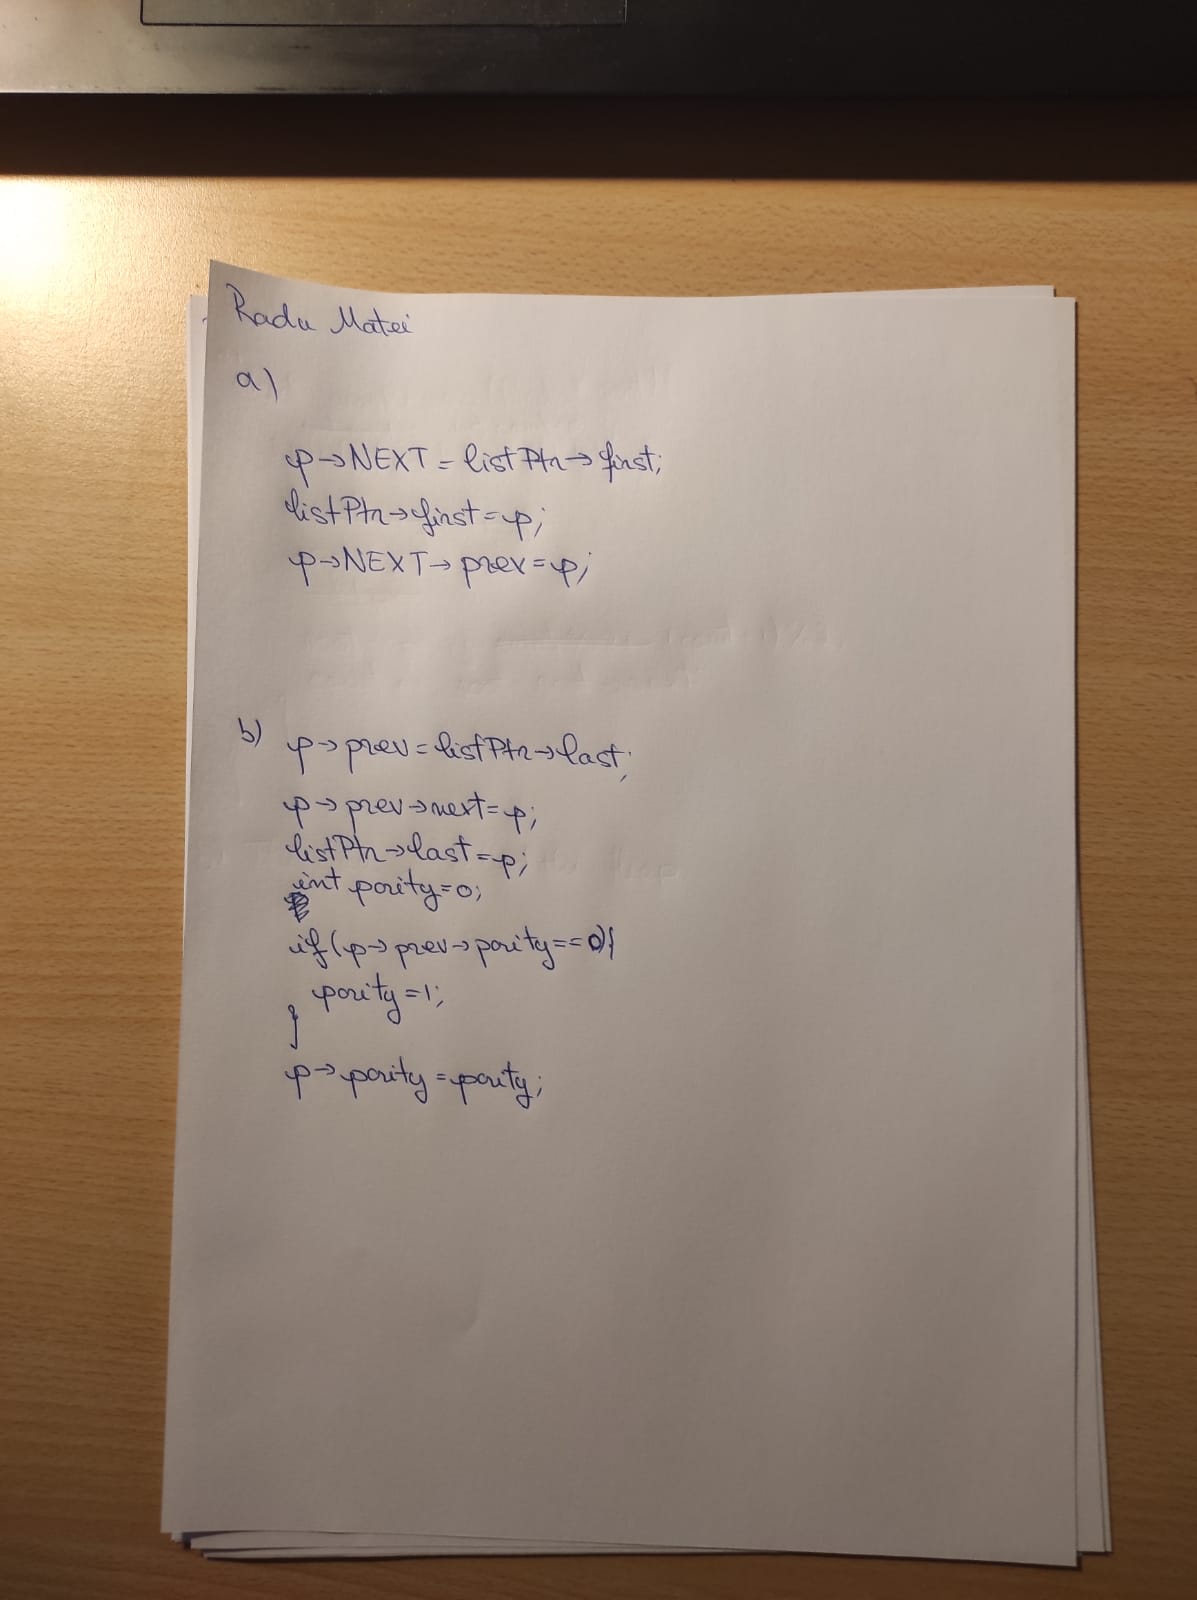 Radu Matei
a)
p→NEXT = listPtr→first;
listPtr→first=p;
p→NEXT→prev=p;
b) p→prev=listPtr→last;
p→prev→next=p;
listPtr→last=p;
int parity=0;
if(p→prev→parity==0){
parity=1;
}
p→parity=parity;